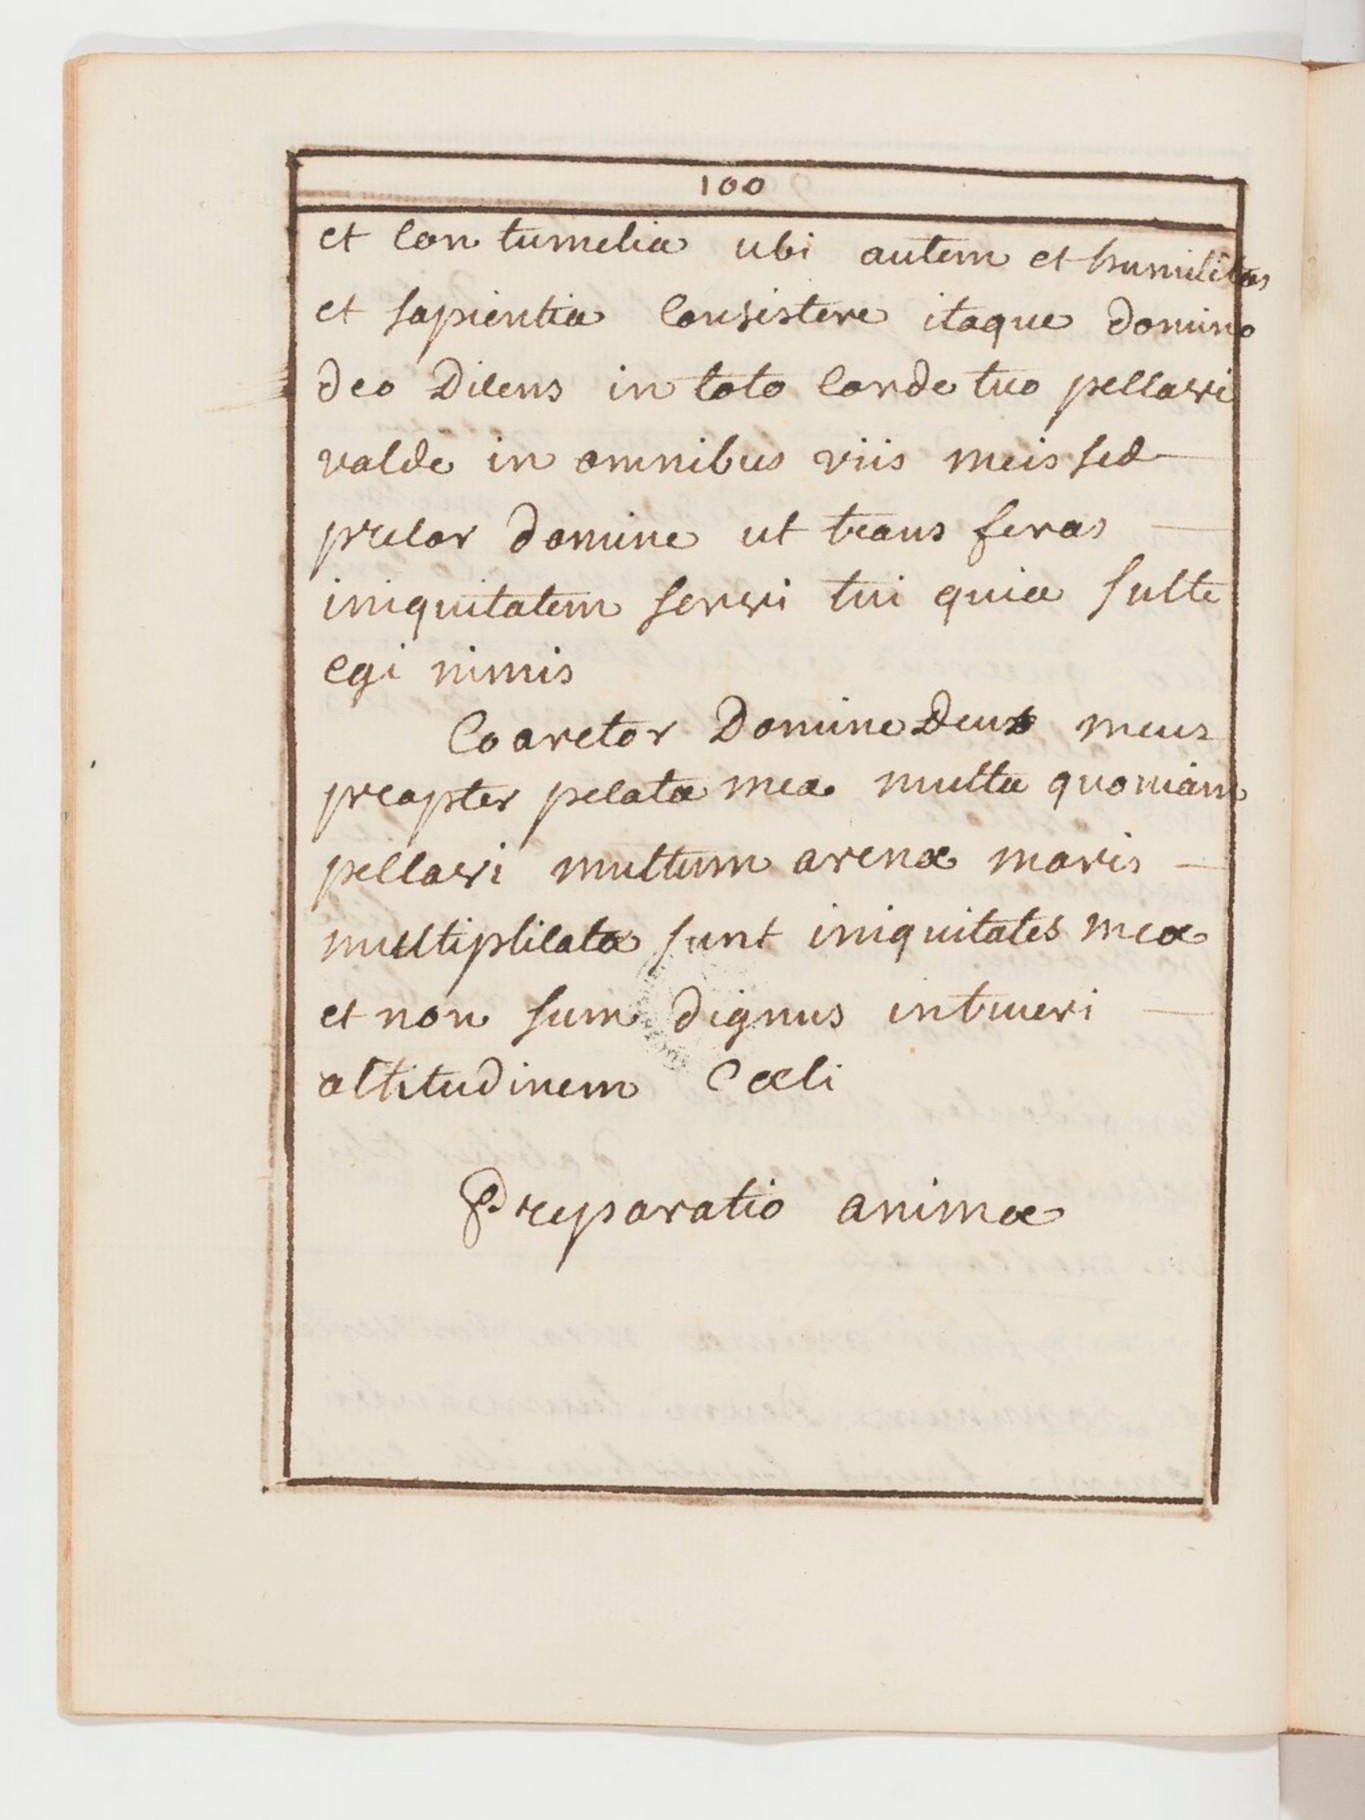 100
et Con tumelia ubi autem et humilitas
et sapientia Consistere itaque domino
deo Dicens in toto Corde tuo peccavi
valde in omnibus viis meis sed
precor domine ut trans feras
iniquitatem servi tui quia sulte
egi nimis
Coarctor Domine Deus meus
preapter pecata mea multa quoniam
peccavi multum arenæ maris
multiplicata sunt iniquitates meæ
et non sum dignus intueri
altitudinem Cæli
Preparatio animæ